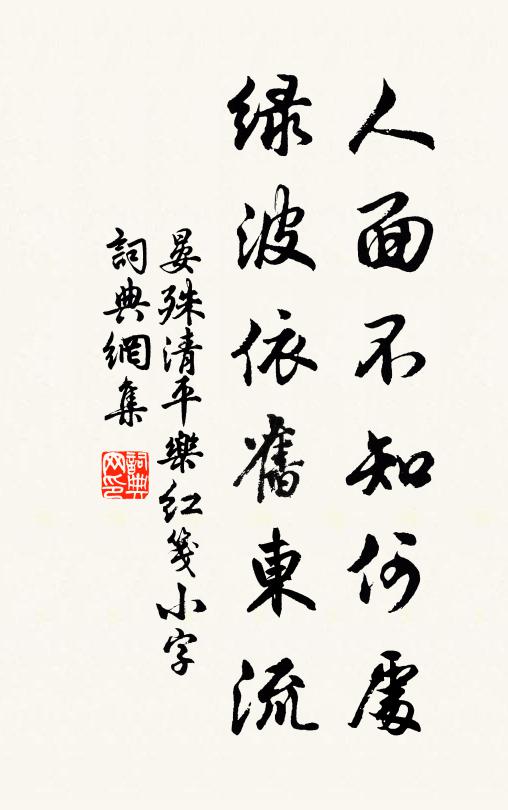 人面不知何處
綠波依舊東流
晏殊清平樂紅箋小字
詞典網集
詞典網印